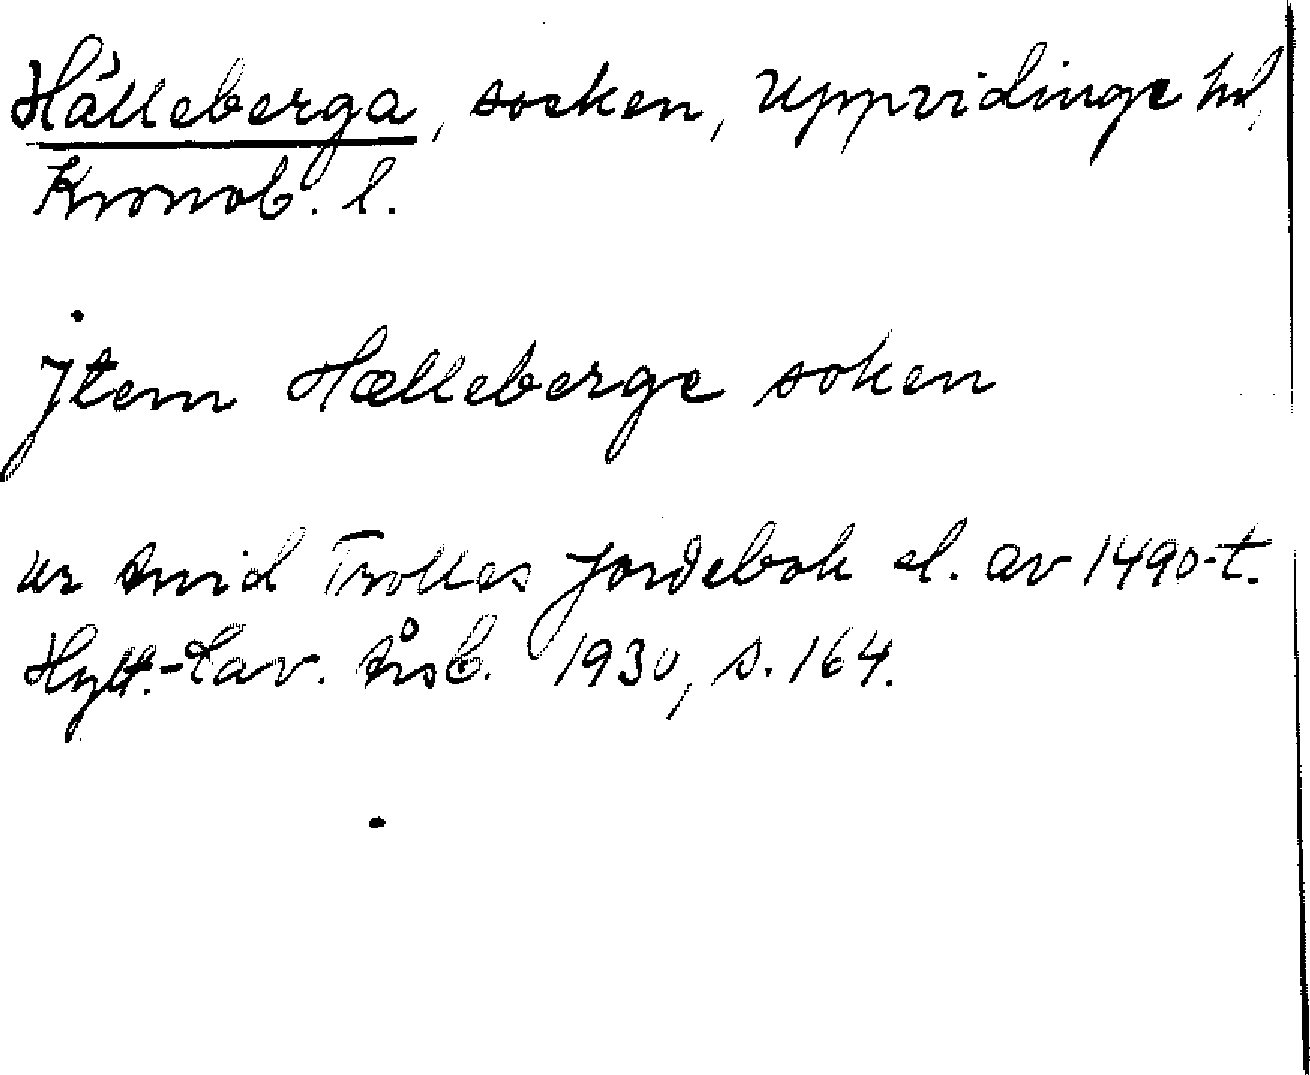 Hälleberga, socken, Uppvidinge hd,
Kronob. l.
Jtem Hælleberge soken
ur Arvid Trolles Jordebok sl. av 1490-t.
Hylt.-Cav. årsb. 1930, s. 164.